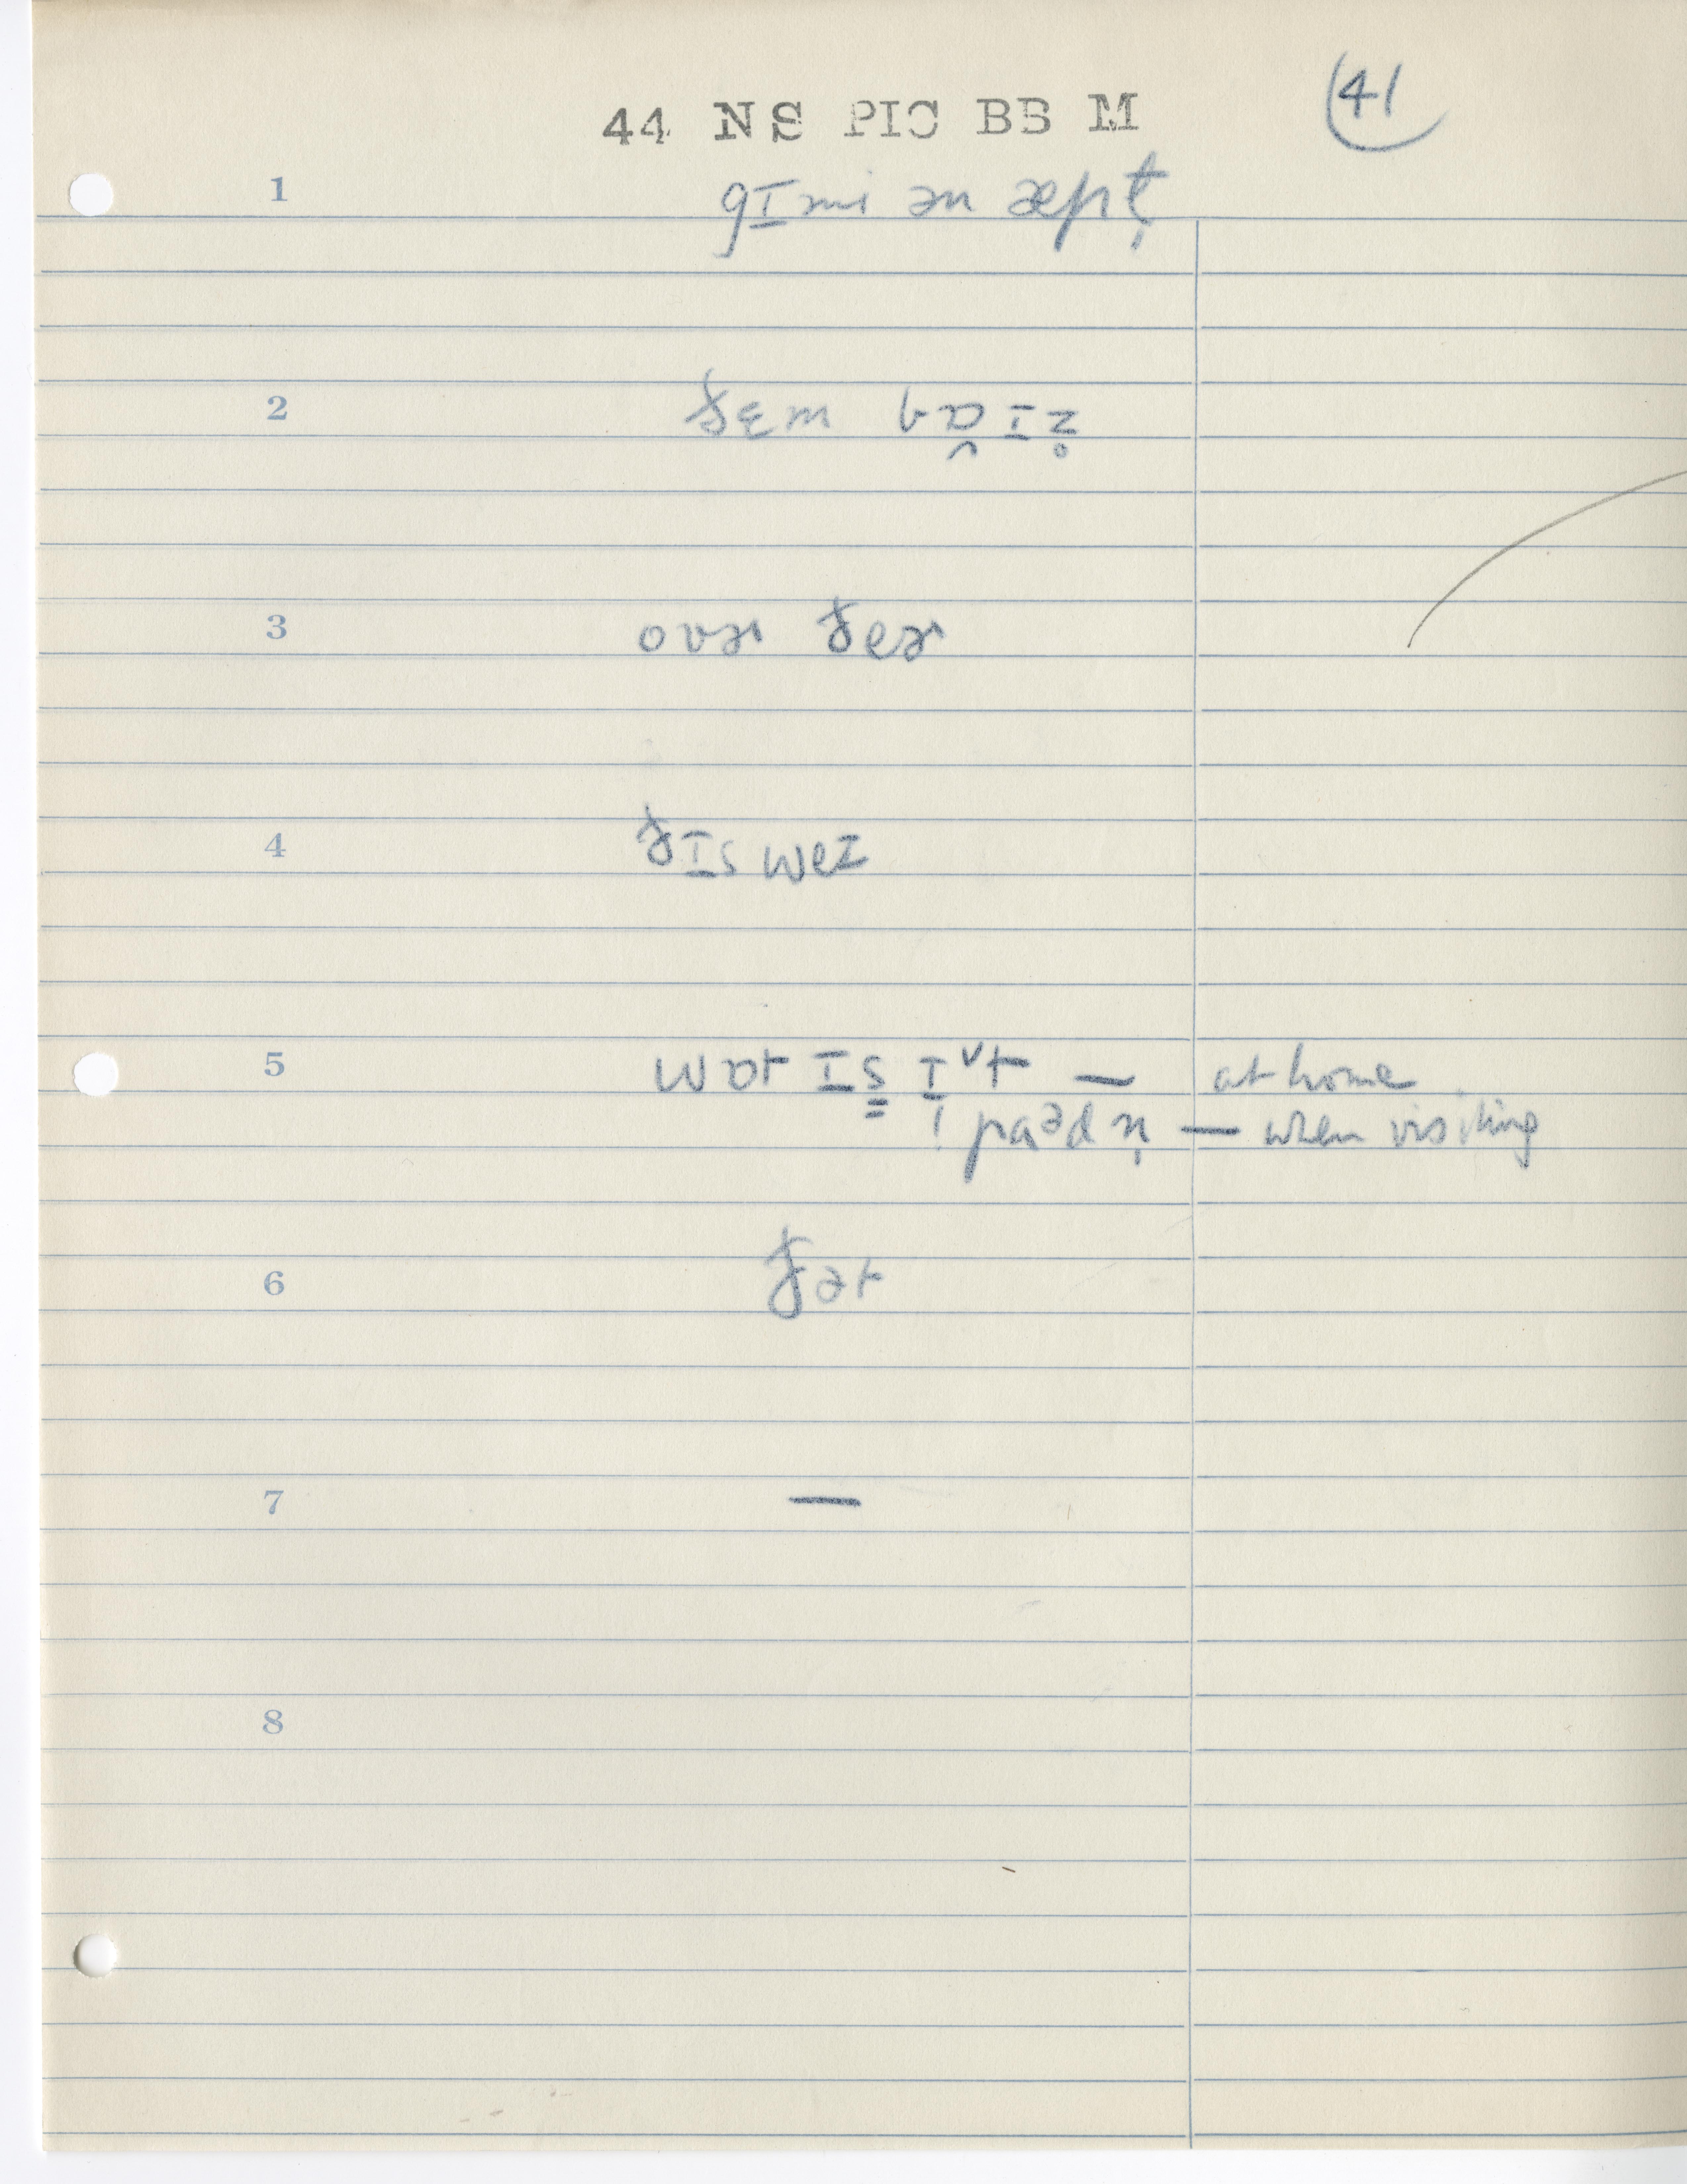 44 NS PIC BB M
41
1 gɪmi ən æpt̬
2 ðɛm bɒ̬ɪz̥
3 ovɚ ðeɚ
4 ðɪs weɪ
5 wɒt ɪs̳ ɪᵛt — at home
ɪ paədn̩ — when visiting
6 ðət
7 —
8